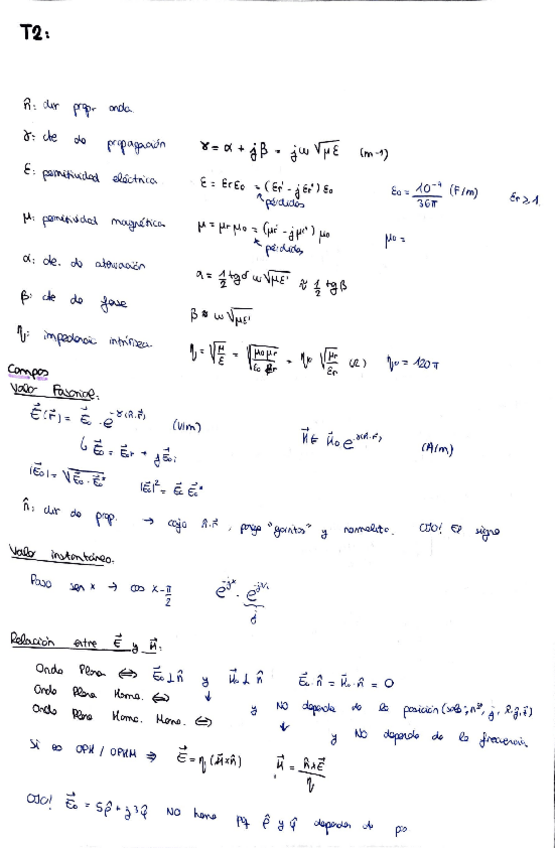 T2:
n̂: dir propr onda
γ: cte de propagación γ = α + jβ = jω√με (m-1)
ε: permitividad eléctrica ε = εrε0 = (εr' - jεr'') ε0 ε0 = 10⁻⁹/36π (F/m) εr ≥ 1
pérdidas
μ: permitividad magnética μ = μrμ0 = (μr' - jμr'') μ0 μ0 =
pérdidas
α: cte. de atenuación α = 1/2 tgδ ω√με' ≈ 1/2 tgβ
β: cte de fase β ≈ ω√με'
η: impedancia intrínseca η = √μ/ε = √μ0μr/ε0εr = η0 √μr/εr (Ω) η0 = 120π
Campos
Valor Fasorial:
E⃗(r⃗) = E⃗0 · e^-γ(n̂·r⃗) (V/m) H⃗0 e^-γ(n̂·r⃗) (A/m)
↳ E⃗0 = E⃗r + jE⃗0i
|E0| = √E⃗0 · E⃗0* |E0|² = E⃗0 E⃗0*
n̂: dir de prop. → cojo n̂·r⃗, pongo "gorritos" y normalizo. OJO! El signo
Valor instantáneo:
Paso sen x → cos x - π/2
Relación entre E⃗ y H⃗:
Onda Plana ⟺ E⃗0 ⊥ n̂ y H⃗0 ⊥ n̂ E⃗0 · n̂ = H⃗0 · n̂ = 0
Onda Plana Homo. ⟺ ↓ y NO depende de la posición
Onda Plana Homo. Homo. ⟺ ↓ y NO depende de la frecuencia
Si es OPH / OPHH ⇒ E⃗ = η (H⃗×n̂) H⃗ = n̂×E⃗/η
OJO! E⃗0 = 5ρ̂ + j3φ̂ NO homo pq ρ̂ y φ̂ dependen de